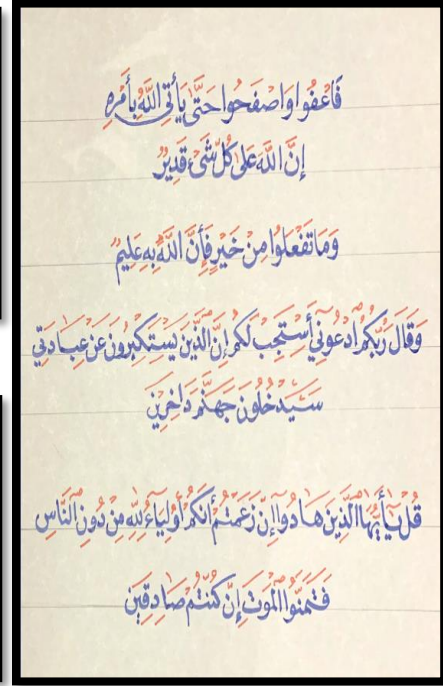 فَاعْفُوا وَاصْفَحُوا حَتَّىٰ يَأْتِيَ اللَّهُ بِأَمْرِهِ
إِنَّ اللَّهَ عَلَىٰ كُلِّ شَيْءٍ قَدِيرٌ
وَمَا تَفْعَلُوا مِنْ خَيْرٍ فَإِنَّ اللَّهَ بِهِ عَلِيمٌ
وَقَالَ رَبُّكُمُ ادْعُونِي أَسْتَجِبْ لَكُمْ إِنَّ الَّذِينَ يَسْتَكْبِرُونَ عَنْ عِبَادَتِي
سَيَدْخُلُونَ جَهَنَّمَ دَاخِرِينَ
قُلْ يَا أَيُّهَا الَّذِينَ هَادُوا إِنْ زَعَمْتُمْ أَنَّكُمْ أَوْلِيَاءُ لِلَّهِ مِنْ دُونِ النَّاسِ
فَتَمَنَّوُا الْمَوْتَ إِنْ كُنْتُمْ صَادِقِينَ